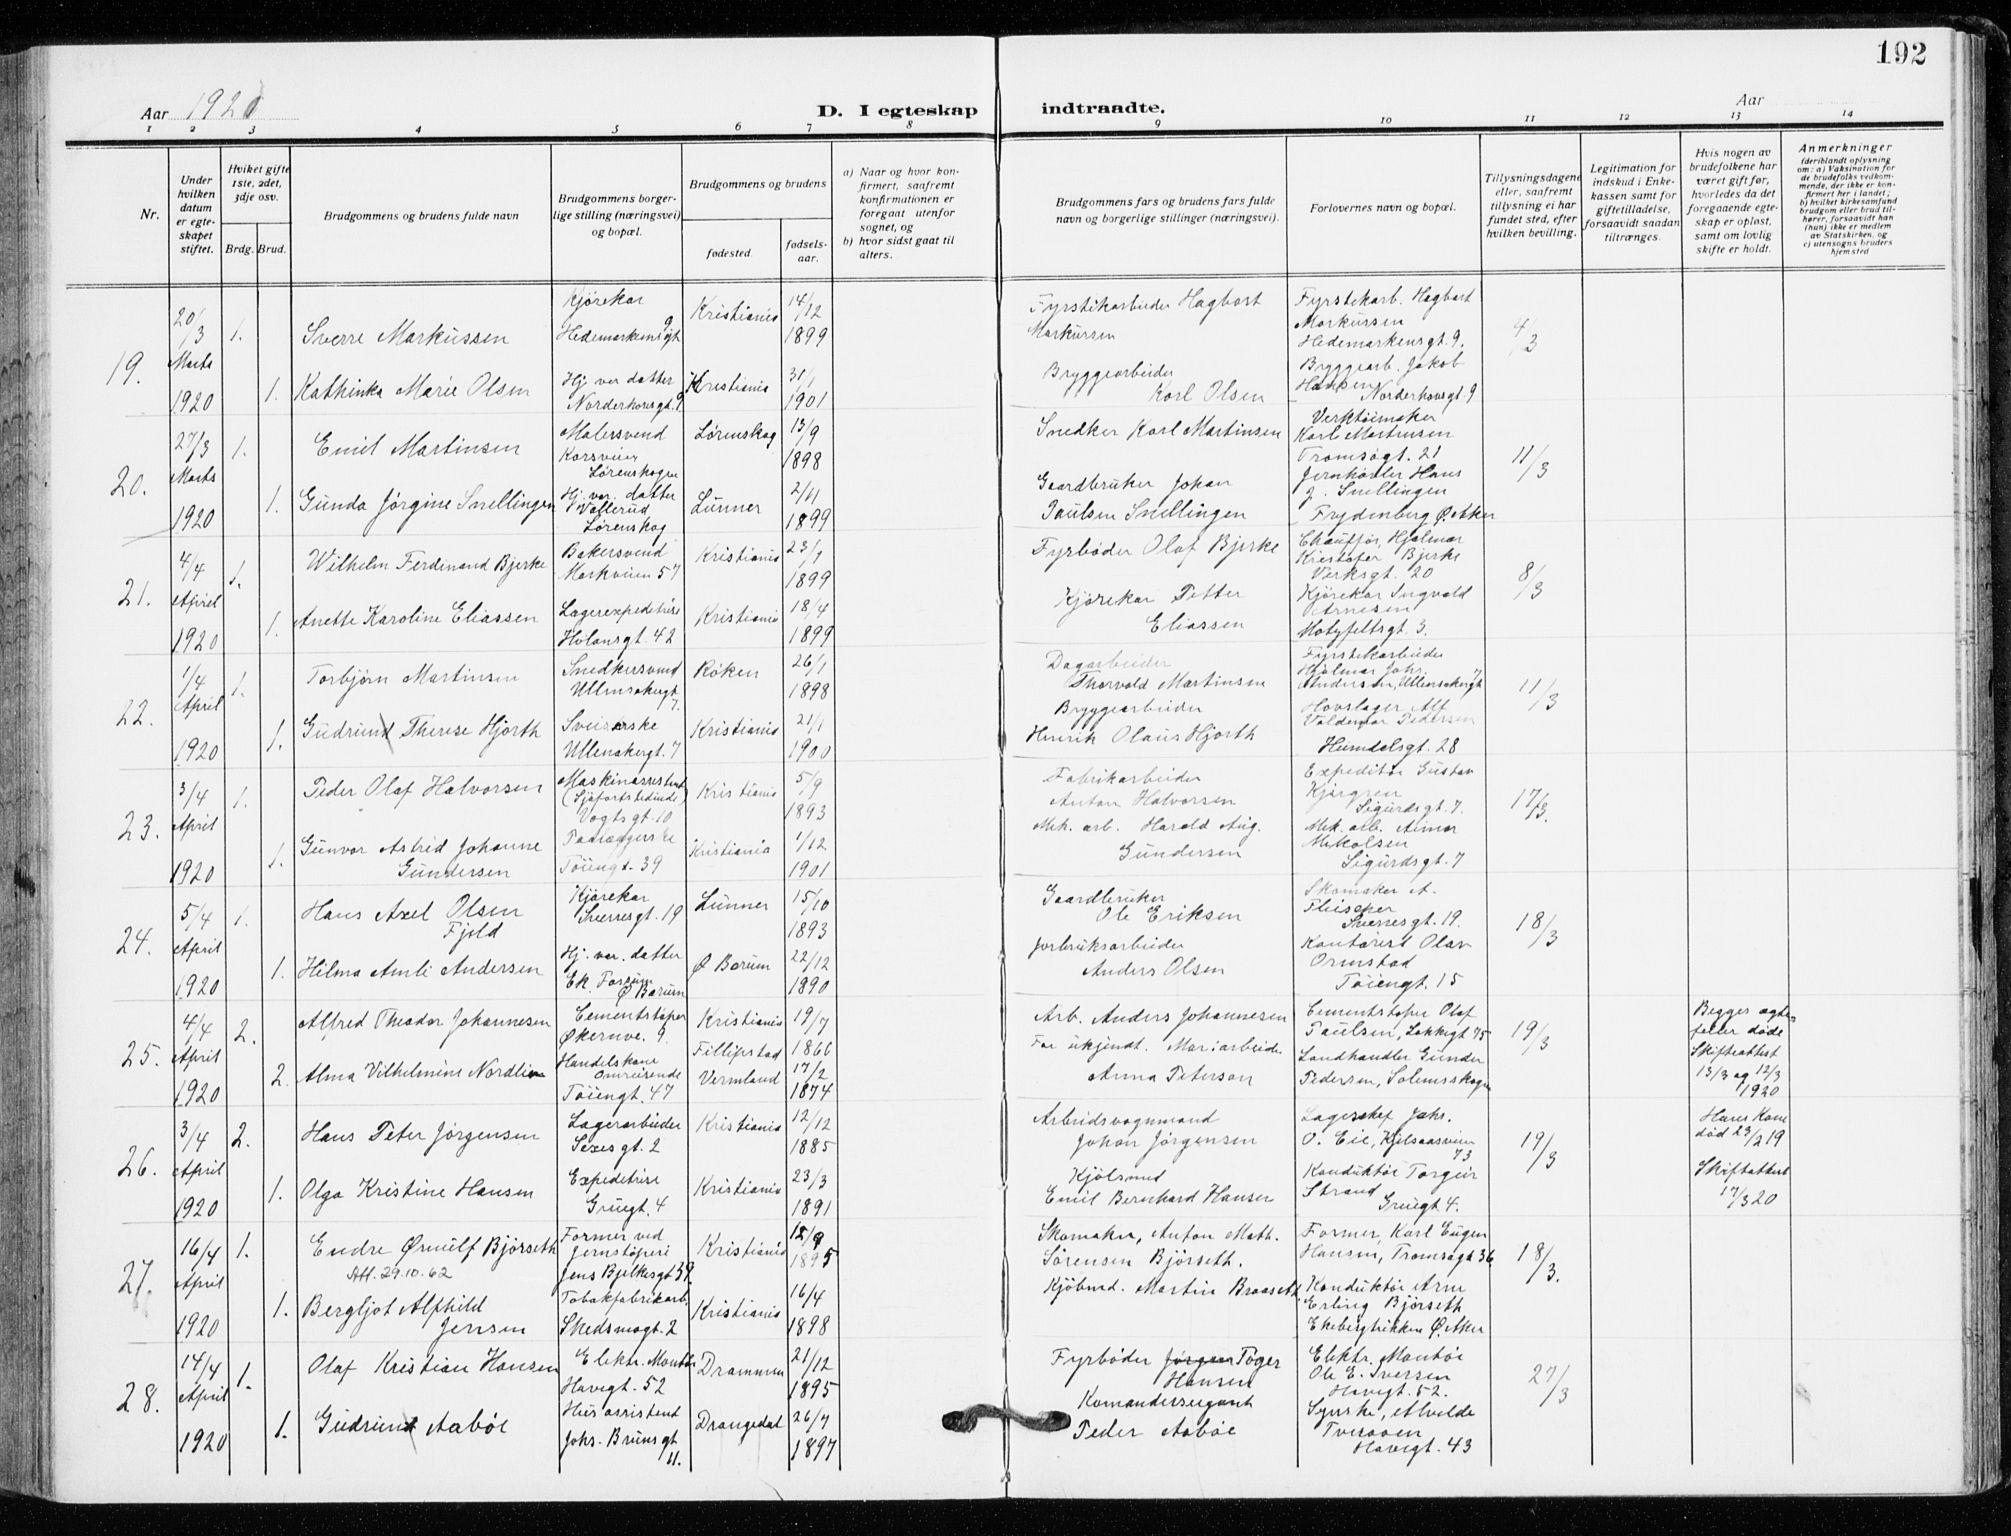 192
Aar 1920
D. I egteskap indtraadte.
Aar
1 2 3 4 5 6 7 8 9 10 11 12 13 14
Nr.
Under hvilken datum er egteskapet stiftet.
Hviket gifte 1ste, 2det, 3dje osv.
Brdg. Brud.
Brudgommens og brudens fulde navn
Brudgommens borgerlige stilling (næringsvei) og bopæl.
Brudgommens og brudens
fødested.
fødselsaar.
a) Naar og hvor konfirmert, saafremt konfirmationen er foregaat utenfor sognet, og
b) hvor sidst gaat til alters.
Brudgommens fars og brudens fars fulde navn og borgerlige stillinger (næringsvei).
Forlovernes navn og bopæl.
Tillysningsdagene eller, saafremt tillysning ei har fundet sted, efter hvilken bevilling.
Legitimation for indskud i Enkekassen samt for giftetilladelse, forsaavidt saadan tiltrænges.
Hvis nogen av brudefolkene har været gift før, hvorledes da det foregaaende egteskap er opløst, samt om lovlig skifte er holdt.
Anmerkninger
(deriblandt oplysning om: a) Vaksination for de brudefolks vedkommende, der ikke er konfirmert her i landet; b) hvilket kirkesamfund brudgom eller brud tilhører, forsaavidt han (hun) ikke er medlem av Statskirken, og c) utensogns bruders hjemsted
19.
20/3 Marts 1920
1. Sverre Markussen
Kjørekar
Hedemarkensgt 9
Kristiania 14/12 1899
Fyrstikarbeider Hagbart
Markussen
Fyrstikarb. Hagbart
Markussen
Hedemarkensgt. 9.
4/3
1. Kathinka Marie Olsen
Hj. vær datter
Norderhovsgt. 9
Kristiania 31/1 1901
Bryggearbeider
Karl Olsen
Bryggearb. Jakob
Hansen
Norderhovsgt. 9
20.
27/3 Marts 1920
1. Emil Martinsen
Malersvend
Korsveien
Lørenskogen
Lørenskog 13/9 1898
Snedker Karl Martinsen
Verktøimaker
Karl Martinsen
Tromsøgt. 21
11/3
1. Gunda Jørgine Snellingen
Hj. vær. datter
Vallerud
Lørenskog
Lunner 2/11 1899
Gaardbruker Johan
Paulsen Snellingen
Jernhøvler Hans
J. Snellingen
Frydenberg Ø. Aker
21.
4/4 April 1920
1. Wilhelm Ferdinand Bjerke
Bakersvend
Markveien 57
Kristiania 23/7 1899
Fyrbøder Olaf Bjerke
Chauffør, Hjalmar
Kristofer Bjerke
Verksgt. 20
8/3
1. Anette Karoline Eliassen
Lagerexpeditrise
Holansgt. 42
Kristiania 18/4 1899
Kjørekar Petter
Eliassen
Kjørekar Ingvald
Arnesen
Motzfeltsgt. 3.
22.
1/4 April 1920
1. Torbjørn Martinsen
Snedkersvend
Ullensakergt. 7.
Røken 26/1 1898
Dagarbeider
Thorvald Martinsen
Fyrstikarbeider
Hjalmar Johs.
Andersen, Ullensakergt 7
11/3
1. Gudrund Therese Hjorth
Sveiserske
Ullensakergt. 7
Kristiania 21/1 1900
Bryggearbeider
Henrik Olaus Hjorth
Hovslager Alf
Valdemar Pedersen
Hundelsgt. 28
23.
3/4 April 1920
1. Peder Olaf Halvorsen
Maskinassistent
(Sjøfartsbedinde)
Vogtsgt. 10
Kristiania 5/9 1893
Fabrikarbeider
Anton Halvorsen
Expeditør Gustav
Kjørgren
Sigurdsgt. 7.
17/3.
1. Gunvor Astrid Johanne
Gundersen
Paalæggerske
Tøiengt. 39
Kristiania 1/12 1901
Mek. arb. Harald Aug.
Gundersen
Mek. arb. Aimar
Mikolsen
Sigurdsgt. 7
24.
5/4 April 1920
1. Hans Axel Olsen
Fjeld
Kjørekar
Sverresgt. 19
Lunner 15/10 1893
Gaardbruker
Ole Eriksen
Skomaker A.
Sverresgt. 19.
18/3
1. Hilma Amli Andersen
Hj. vær. datter
Ø Bærum
Ø Bærum 22/12 1890
Jorbruksarbeider
Anders Olsen
Kontorist Olav
Ormstad
Tøiengt. 15
25.
4/4 April 1920
2. Alfred Theodor Johannesen
Cementstøper
Økernve. 9.
Kristiania 19/7 1866
Arb. Anders Johannesen
Cementstøper Olaf
Paulsen, Lakkegt 75
19/3
Begges ægtefeller døde
Skifteattest
13/3 og 12/3
1920
2. Alma Vilhelmine Nordlie
Handelskone
Omreisende
Tøiengt. 47
Fillipstad
Vermland 17/2 1874
Far ukjendt. Mor: arbeider
Anna Peterson
Landhandler Gunder
Pedersen, Solemsskogen
26.
3/4 April 1920
2. Hans Peter Jørgensen
Lagerarbeider
Sexesgt. 2
Kristiania 12/12 1885
Arbeidsvognmand
Johan Jørgensen
Lagerchef Johs.
O. Eie, Kjelsaasveien
73
19/3
Hans Kone
død 23/2 19
Skifteattest
17/3 20
1. Olga Kristine Hansen
Expeditrise
Gruegt. 4
Kristiania 23/3 1891
Kjølsmed
Emil Bernhard Hansen
Konduktør Torgeir
Strand
Gruegt. 4.
27.
16/4 April 1920
1. Endre Ørnulf Bjørseth
Att. 29.10.62
Former ved
Jernstøperi
Jens Bjelkesgt 39.
Kristiania 12/9 1895
Skomaker, Anton Math.
Sørensen Bjørseth.
Former, Karl Eugen
Hansen, Tromsøgt 36
18/3.
1. Bergljot Alfhild
Jensen
Tobakfabrikarb.
Skedsmogt. 2
Kristiania 16/4 1898
Kjøbmd. Martin Braaseth
Konduktør Arne
Erling Bjørseth
Ekebergrikken Ø. Aker
28.
14/4 April 1920
1. Olaf Kristian Hansen
Elektr. Montør
Havegt. 52
Drammen 21/12 1895
Fyrbøder Jørgen Toger
Hansen
Elektr. Montør
Ole E. Iversen
Havegt. 52.
27/3
1. Gudrund Aabøe
Husassistent
Johs. Brunsgt
11.
Drangedal 26/7 1897
Komandersergent
Peder Aabøe
Syerske, Alvilde
Tveraaen
Havegt. 43